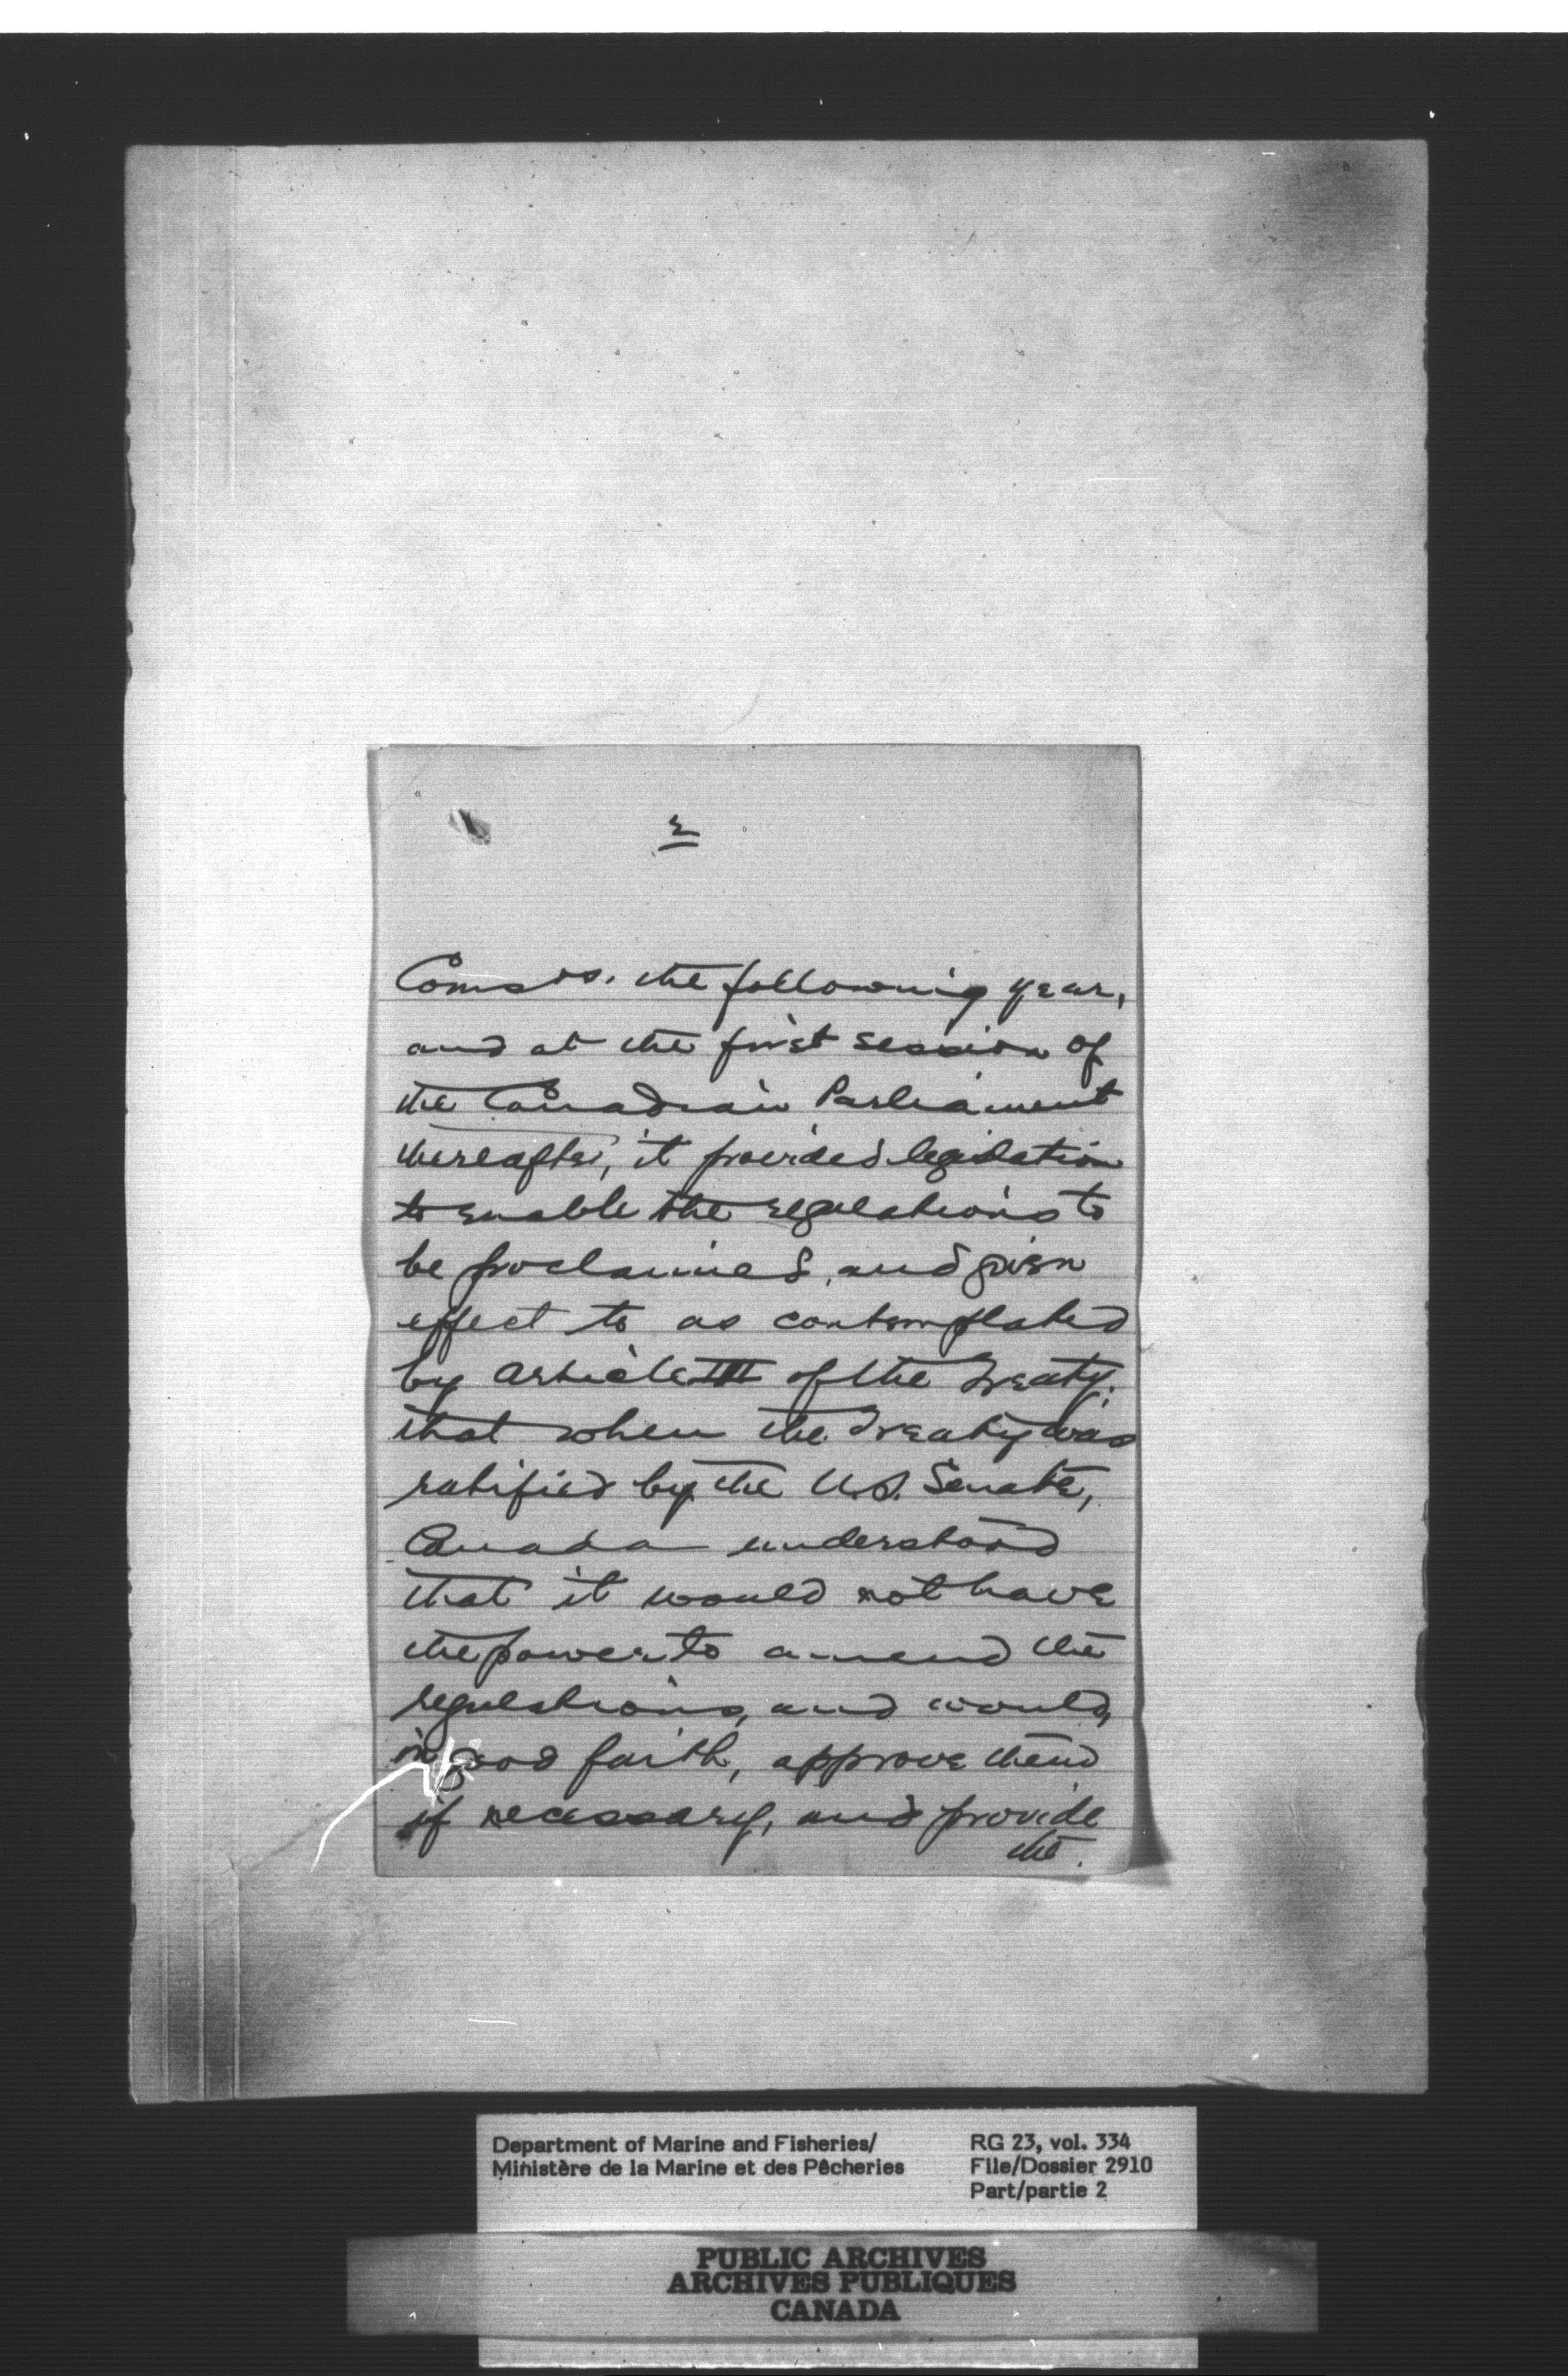 2
Comsrs. the following year,
and at the first session of
the Canadian Parliament
thereafter, it provided legislation
to enable the regulations to
be proclaimed, and given
effect to as contemplated
by Article III of the Treaty.
that when the Treaty was
ratified by the U.S. Senate,
Canada understood
that it would not have
the power to amend the
regulations, and would,
in good faith, approve them
if necessary, and provide
the.
Department of Marine and Fisheries/
Ministère de la Marine et des Pêcheries
RG 23, vol. 334
File/Dossier 2910
Part/partie 2
PUBLIC ARCHIVES
ARCHIVES PUBLIQUES
CANADA